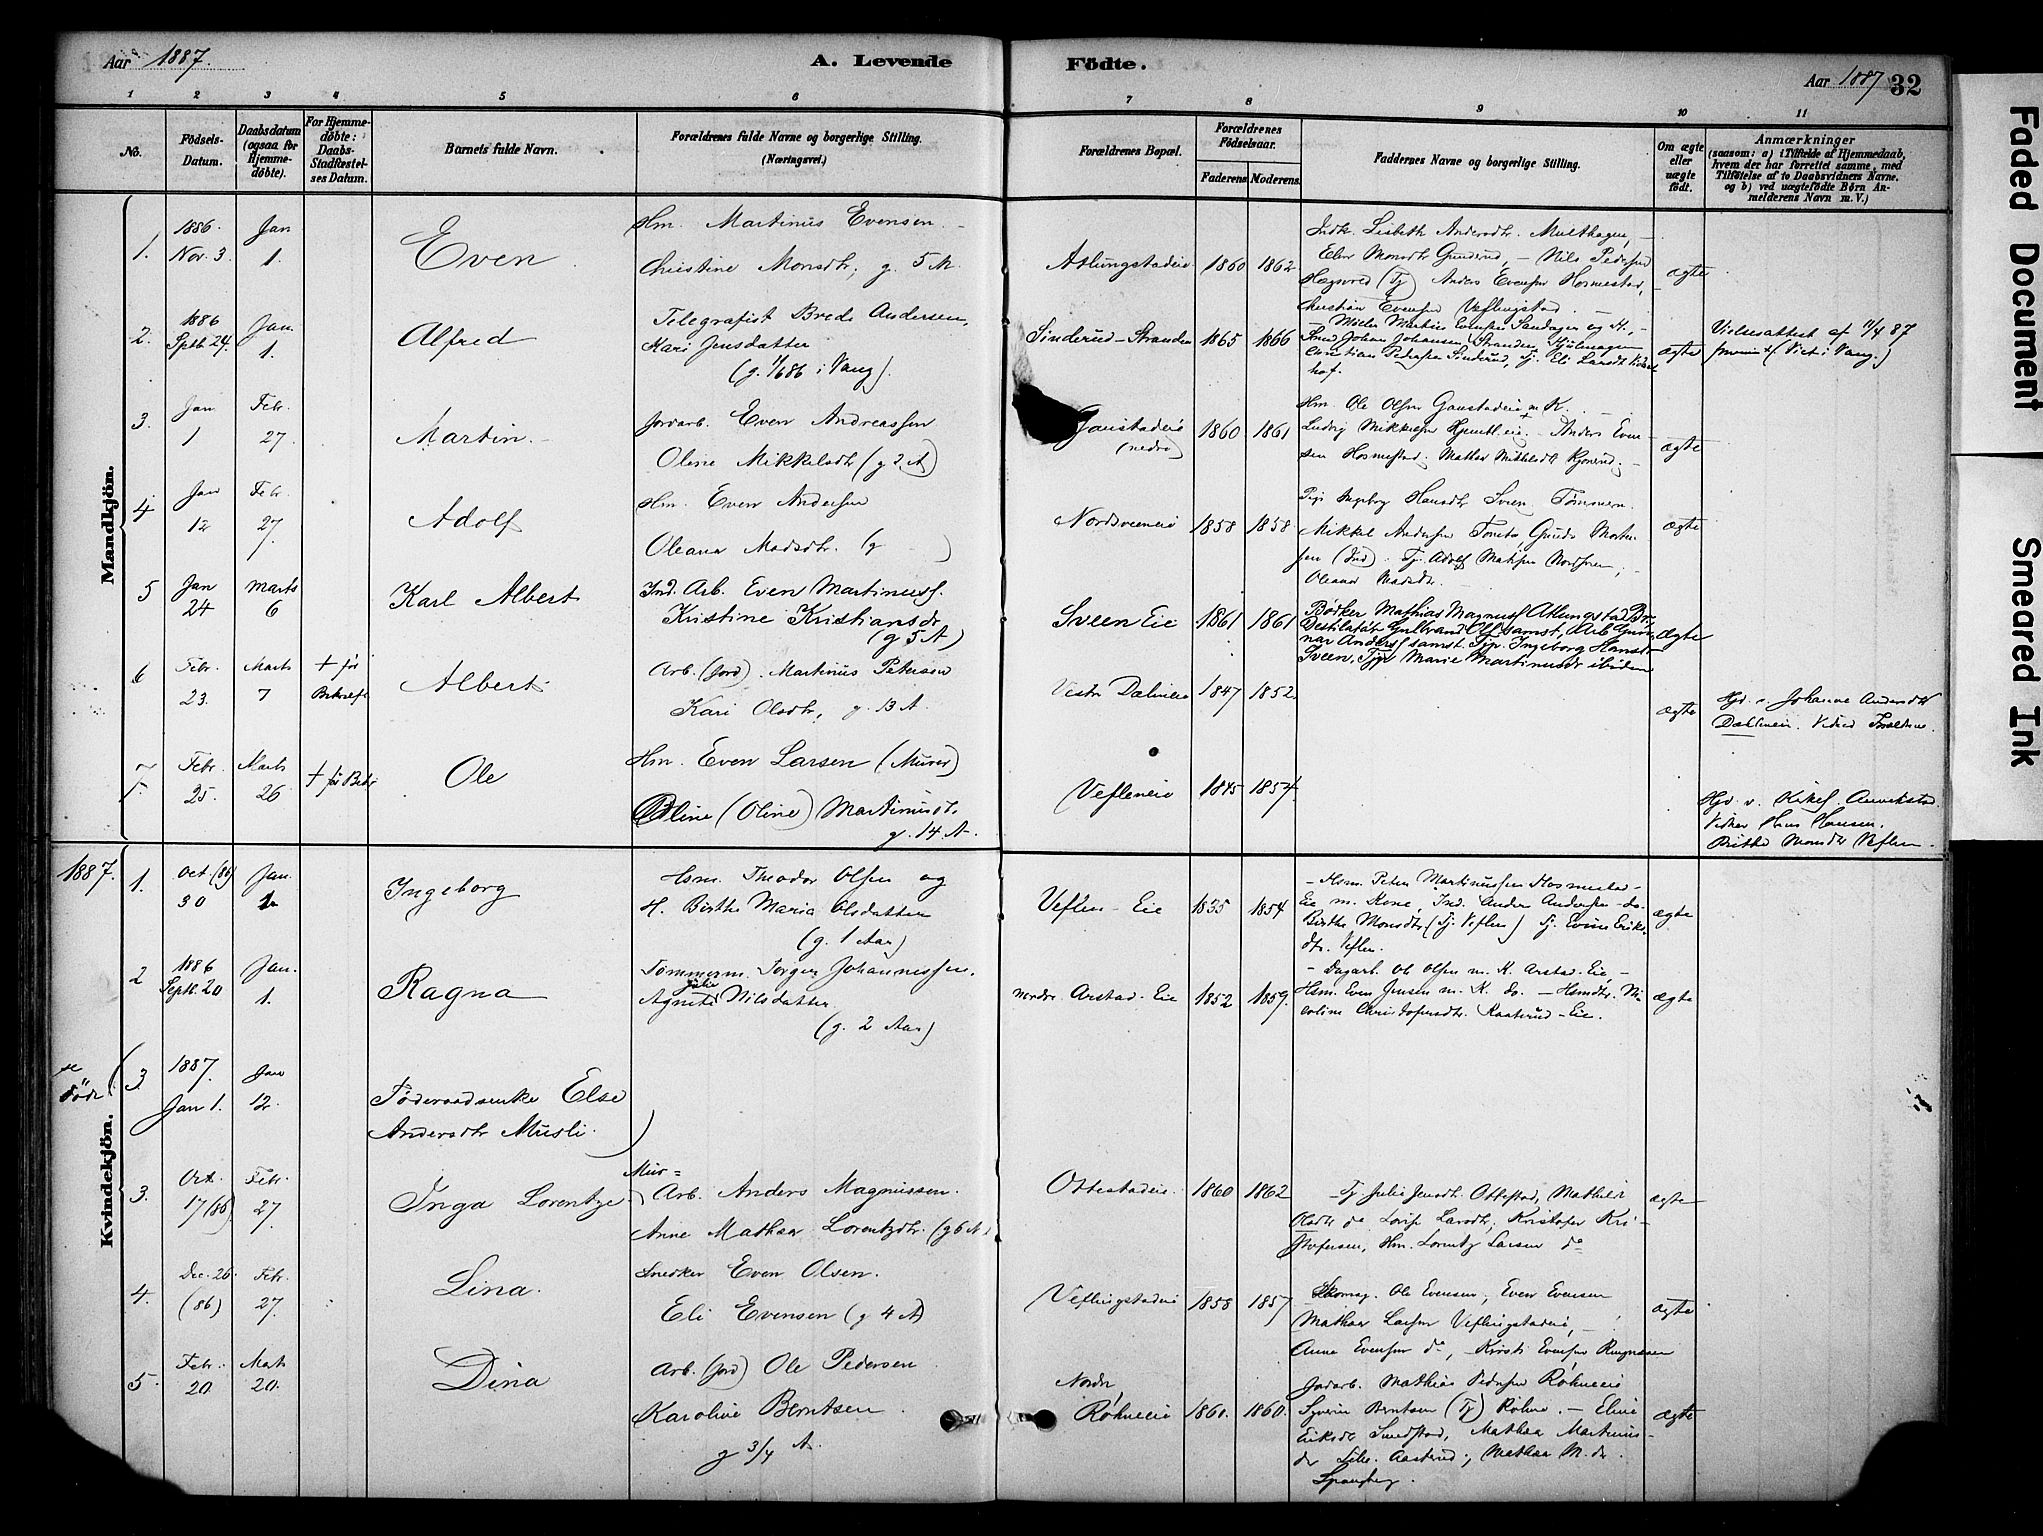 Aar 1887.
A. Levende Fødte.
Aar 1887
32
1 2 3 4 5 6 7 8 9 10 11
No.
Fødsels-Datum.
Daabsdatum (ogsaa for Hjemme-døbte).
For Hjemme-døbte: Daabs-Stadfæstel-ses Datum.
Barnets fulde Navn.
Forældrenes fulde Navne og borgerlige Stilling.
(Næringsvei.)
Forældrenes Bopæl.
Forældrenes Fødselsaar.
Faderens. Moderens.
Faddernes Navne og borgerlige Stilling.
Om ægte eller uægte født.
Anmærkninger
(saasom: a) i Tilfælde af Hjemmedaab, hvem der har forrettet samme, med Tilføielse af to Daabsvidners Navne. og b) ved uægtefødte Børn An-melderens Navn m. V.)
Mandkjøn.
1. 1886 Nov. 3 Jan 1. Even
Hm. Martinus Evensen.
Christine Monsdtr, g. 5 A.
Atlungstadeie 1860 1862
Indr. Lisbeth Andersdtr. Multhagen, -
Eline Monsdtr Gunderud, - Nils Pedersen
(Tj) Anders Evensen Hosmestad,
Christian Evensen Veflingstad.
ægte
2. 1886 Septb. 24. Jan. 1. Alfred
Telegrafist Brede Andersen,
Kari Jensdatter
(g. 1/6 86 i Vang).
Sinderud-Stranden 1865 1866
- Møller Martin Evensen Sandager og H., -
Smed Johan Johansen Stranden,
Christian Pedersen Sinderud, Tj. Eli Larsdtr
hof.
ægte
Vielsesattest af 11/4 87
(Viet i Vang.)
3. Jan 1 Febr. 27. Martin.
Jordarb. Even Andreassen
Oline Mikkelsdtr (g 2 A)
Gaustadeie
(nedre)
1860 1861
Hm. Ole Olsen Gaustadeie m K.
Ludvig Mikkelsen Hjemstl. eie - Anders Even-
sen Hosmestad; Mathea Mikkelsdtr
ægte
4 Jan 12 Febr. 27. Adolf
Hm. Even Andersen
Oleana Madsdtr. (g )
Nordsveeneie 1858 1858
Pige Ingeborg Hansdtr Sveen, Tømmerm.
Mikkel Andersen Gunder Morten-
sen (Ind). Tj. Adolf
Oleana Madsdtr.
ægte
5 Jan 24 Marts 6 Karl Albert
Ind. Arb. Even Martinuss.
Kristine Kristiansdr
(g 5 A)
Sveen Eie 1861 1861
Bødker Mathias Magnuss Atlungstad Br.
Destilatør Gulbrand Ols. samst, Arb. Gun-
nar Anders s samst. Pige. Ingeborg Hansdr
Sveen, Tjp Marie Martinusdr ibidem
ægte
6 Febr. 23. Marts 7 + før Bekræft. Albert
Arb. (Jord). Martinus Petersen
Kari Olsdtr, g. 13 A.
Vestr Dæhleneie 1847 1852
ægte
Hjd v Johanne Andersdtr
Dæhleneie. Vidner
7. Febr. 25. Marts 26 + før Bekr Ole
Hm. Even Larsen (Murer)
Oline (Oline) Martinusdtr.
g. 14 A.
Vefleneie 1845 1854.
Hjd. v. Kirkes.
Vidner Hans Hansen.
Birthe Monsdtr Veflen.
1887.
Kvindekjøn.
1. Oct. (86) 30 Jan. 1. Ingeborg
Hsm. Theodor Olsen og
H. Birthe Maria Olsdatter
(g. 1 Aar)
Veflen-Eie 1835 1854
- Hsm. Peter Martinussen Hosmestad-
Eie m. Kone, Ind. Anders Andersen do.
Birthe Monsdtr (Tj. Veflen) Tj. Evine Eriks-
dtr. Veflen.
ægte
2 1886 Septb. 20 Jan. 1. Ragna
Tømmerm. Jørgen Johannessen.
Agnethe Julie Nilsdatter
(g. 2 Aar)
Nordre. Arstad. Eie 1852 1859.
- Dagarb. Ole Olsen m. K. Arstad. Eie -
Hsm. Even Jensen m. K. do. - Hsmdtr. Ni-
coline Christofersdtr. Kaaterud-Eie.
ægte
se Døde (
3 1887. Jan 1. Jan 12.
Føderaadsenke Else
Andersdtr Musli. )
3. Oct. 17 (86) Febr. 27. Inga Lorentze
Mur=
Arb. Anders Magnussen.
Anne Mathea Lorentzdtr. (g 6 A)
Ottestadeie. 1860 1862
- Tj Julie Jensdtr. Ottestad, Mathilde
Olsdtr do Lovise Larsdtr, Kristofer Kri-
stofersen, Hm. Lorentz Larsen do
ægte
4. Dec. 26. (86) Febr. 27. Lina.
Snedker Even Olsen.
Eli Evensen (g 4 A)
Veflingstadeie 1858 1857
Skomag. Ole Evensen, Even Evensen
Mathea Larsen Veflingstadeie, -
Anna Evensen do, - Kirsti Evensen
ægte
5. Febr. 20. Marts 20. Dina
Arb. (Jord) Ole Pedersen
Karoline Berntsen.
g 3/4 A.
Nordr
Røhneeie 1860. 1860.
Jordarb. Mathias Pedersen Røhneeie
Syverin Berntsen (Tj) Røhne. - Eline
Eriksdtr Smedstad, Mathea Martinus-
dr Lille. Aasterud; Mathea M. dr.
Spangberg.
ægte
Faded Document
Smeared Ink